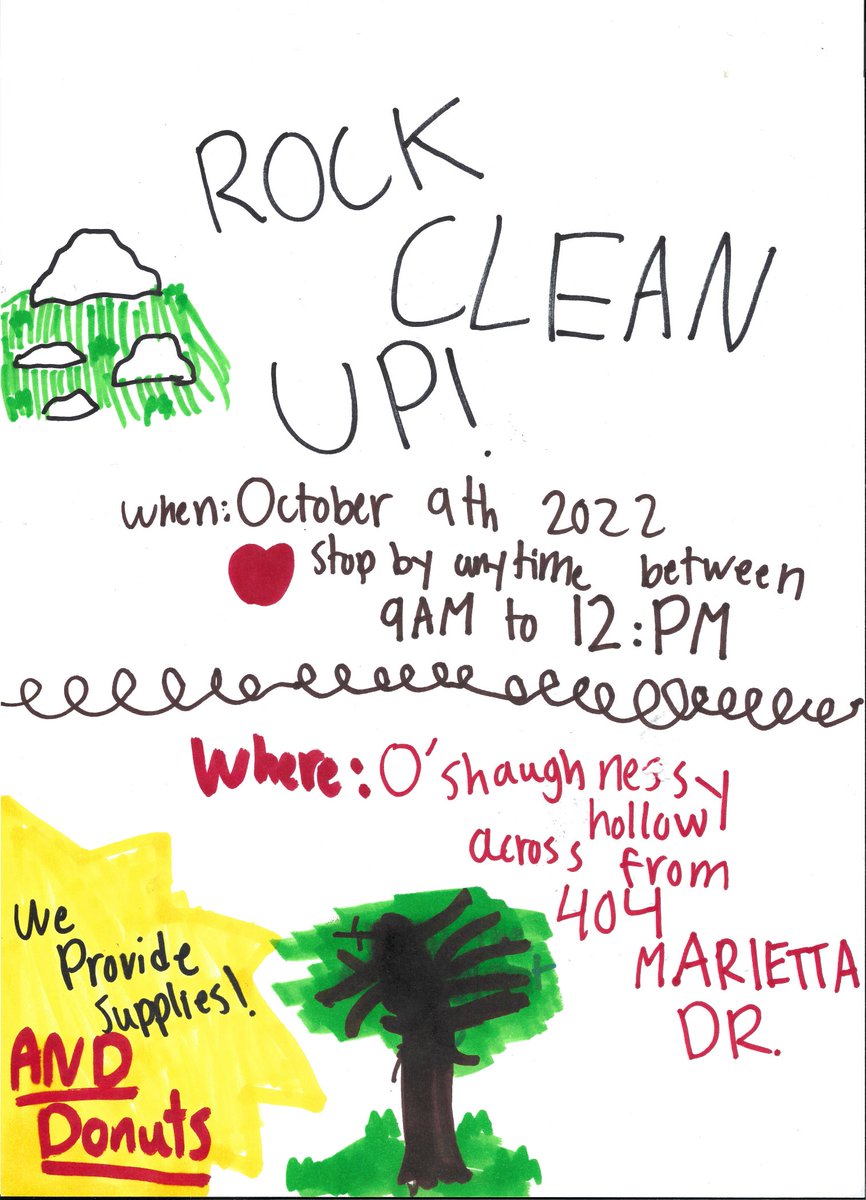 ROCK
CLEAN
UP!
when: October 9th 2022
stop by anytime between
9AM to 12:PM
Where: O'shaughnessy
hollow
across from
404
MARIETTA
DR.
We
Provide
supplies!
AND
Donuts